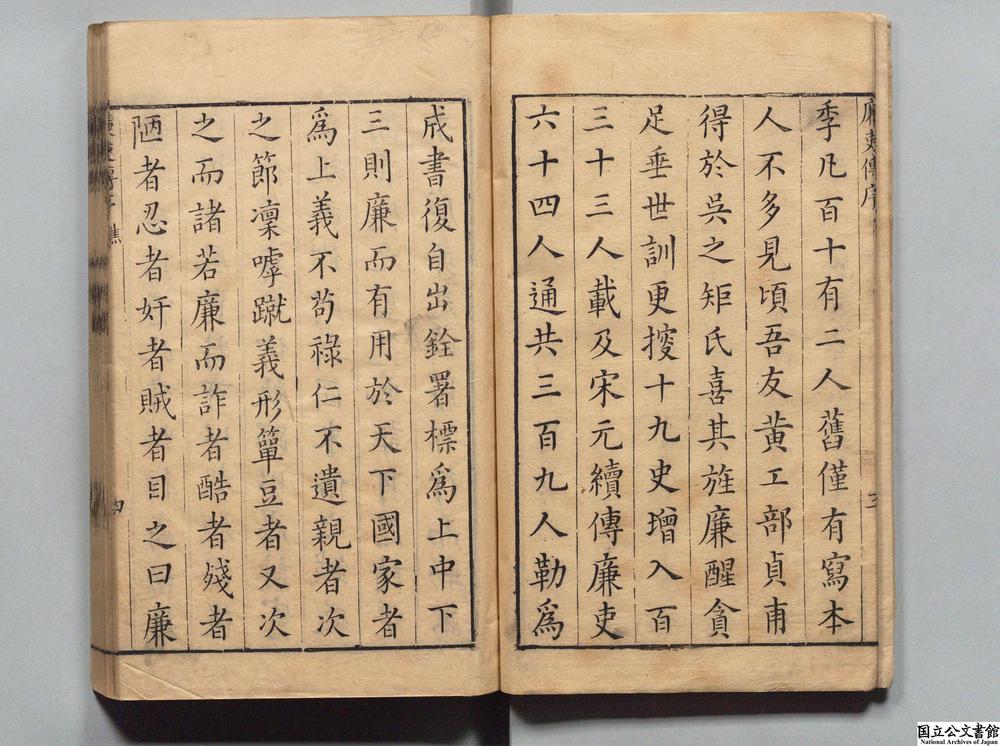 廉吏傳序
季凡百十有二人舊僅有寫本
人不多見頃吾友黃工部貞甫
得於吳之矩氏喜其旌廉醒貪
足垂世訓更搜十九史增入百
三十三人載及宋元續傳廉吏
六十四人通共三百九人勒為
三
成書復自出銓署標為上中下
三則廉而有用於天下國家者
為上義不茍祿仁不遺親者次
之節凜嘑蹴義形簞豆者又次
之而諸若廉而詐者酷者殘者
陋者忍者奸者賊者目之曰廉
國立公文書館
National Archives of Japan